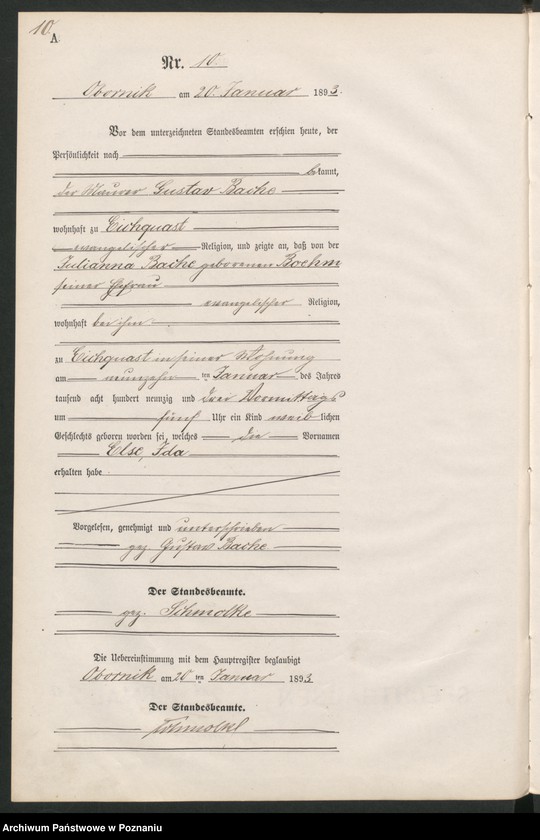 10
A
Nr. 10
Obornik am 20. Januar 1893.
Vor dem unterzeichneten Standesbeamten erschien heute, der
Persönlichkeit nach
bekannt,
der Maurer Gustav Bache
wohnhaft zu Eichquast
evangelischer Religion, und zeigte an, daß von der
Julianna Bache geborenen Boehm
seiner Ehefrau
evangelischer Religion,
wohnhaft bei ihm
zu Eichquast in seiner Wohnung
am neunzehn ten Januar des Jahres
tausend acht hundert neunzig und drei Vormittags
um fünf Uhr ein Kind weib lichen
Geschlechts geboren worden sei, welches die Vornamen
Else, Ida
erhalten habe
Vorgelesen, genehmigt und unterschrieben
gez. Gustav Bache
Der Standesbeamte.
gez. Schmolke
Die Uebereinstimmung mit dem Hauptregister beglaubigt
Obornik am 20 ten Januar 1893
Der Standesbeamte.
Schmolke
Archiwum Państwowe w Poznaniu
szukajwarchiwach.pl